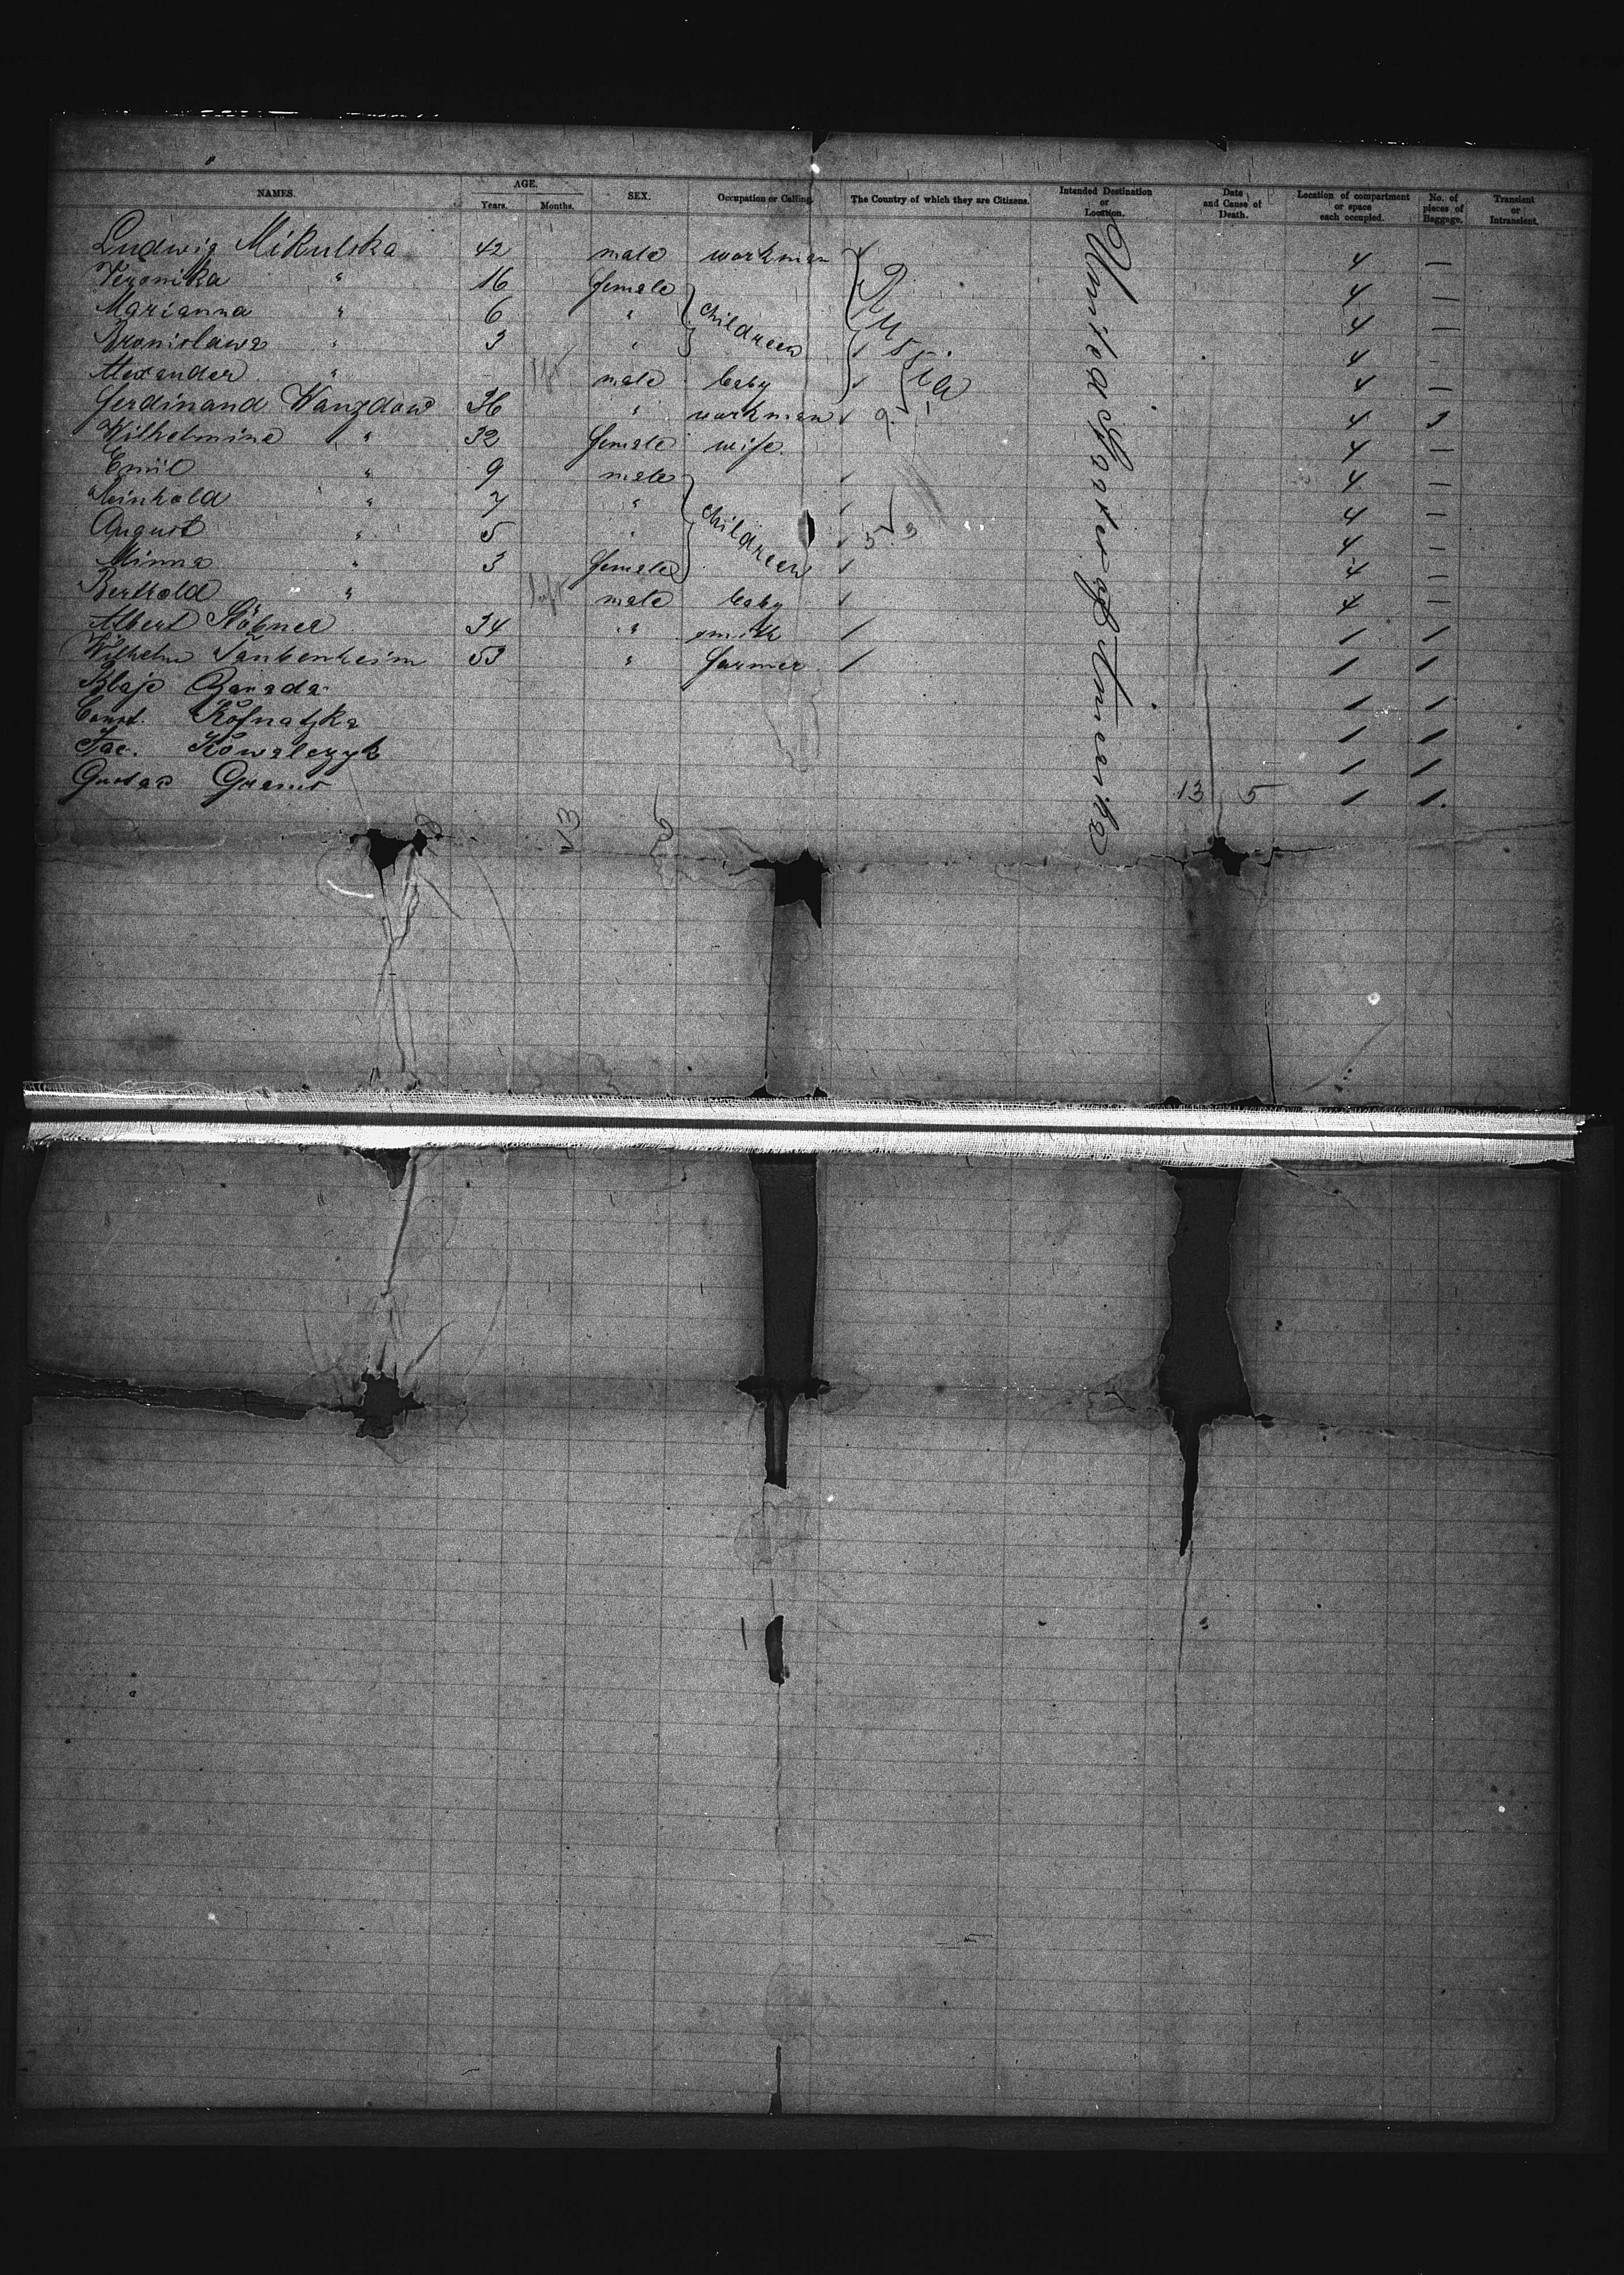 NAMES. AGE. Years. Months. SEX. Occupation or Calling. The Country of which they are Citizens. Intended Destination or Location. Date and Cause of Death. Location of compartment or space each occupied. No. of pieces of Baggage. Transient or Intransient.
Ludwig Mikulska 42 male workman Russia United States of America 4 —
Veronika " 16 female children 4 —
Marianna " 6 " 4 —
Bronislawa " 3 " 4 -
Alexander " male baby 4 —
Ferdinand Wanzdow 36 " workman 4 3
Wilhelmine " 32 female wife. 4 —
Emil " 9 male children 4 —
Reinhold " 7 " 4 —
August " 5 " 4 —
Minna " 3 female 4 —
Berthold " male baby 4 —
Albert 34 " smith / 1 1
Wilhelm Tankenheim 53 " farmer / 1 1
Blaje 1 1
Const. 1 1
Jac. Kowalczyk 1 1
Gustav 13 5 1 1.
13